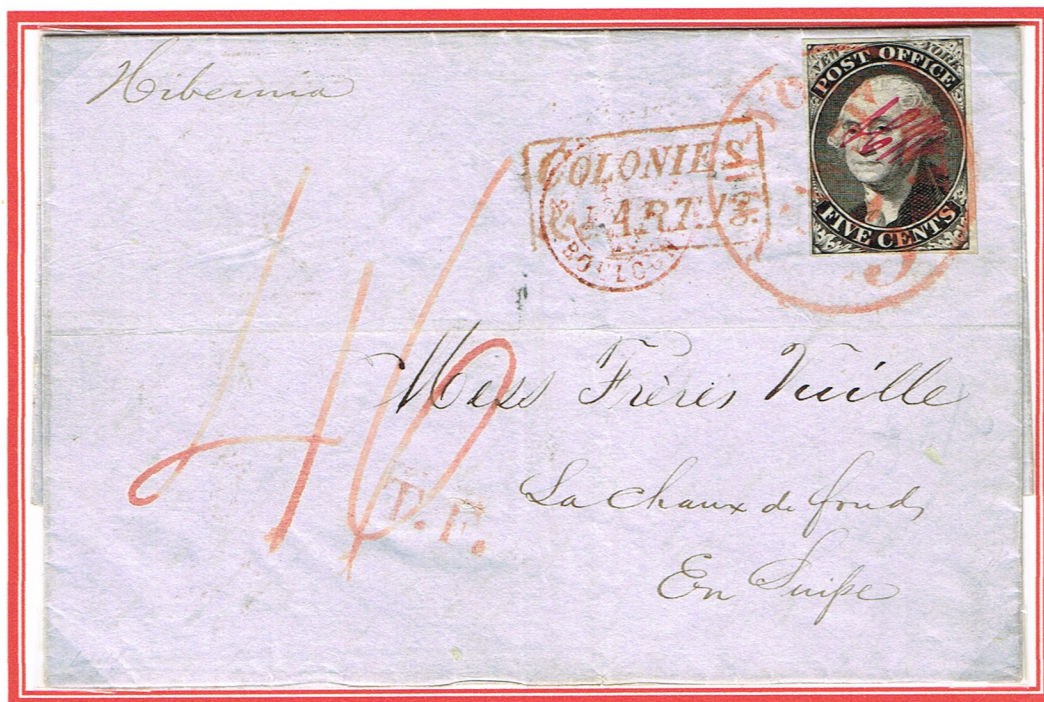 Hibernia
NEW YORK
POST OFFICE
FIVE CENTS
COLONIES
&c. ART. 12.
12
BOULOGNE
5
46
Mess Frères Vuille
P. F.
La Chaux de fonds
En Suiſse